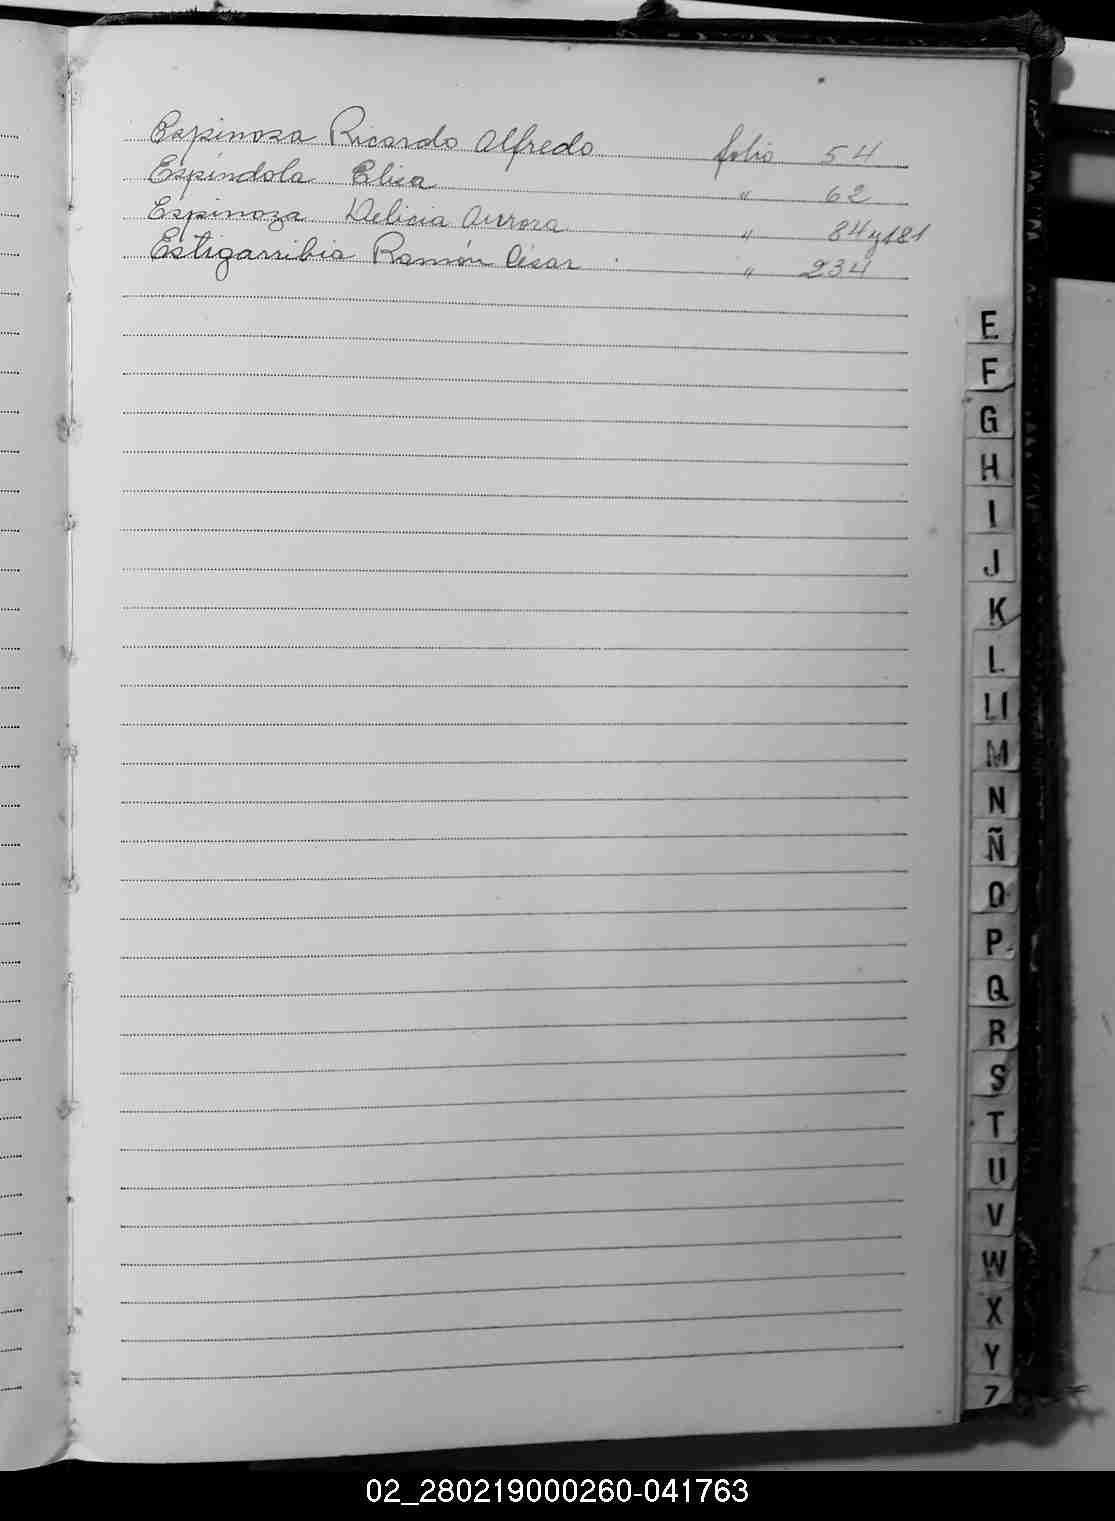 Espinosa Ricardo Alfredo folio 54
Espíndola Elisa " 62
Espinoza Delicia Aurora " 84 y 181
Estigarribia Ramón César " 234
E
F
G
H
I
J
K
L
Ll
M
N
Ñ
O
P
Q
R
S
T
U
V
W
X
Y
Z
02_280219000260-041763